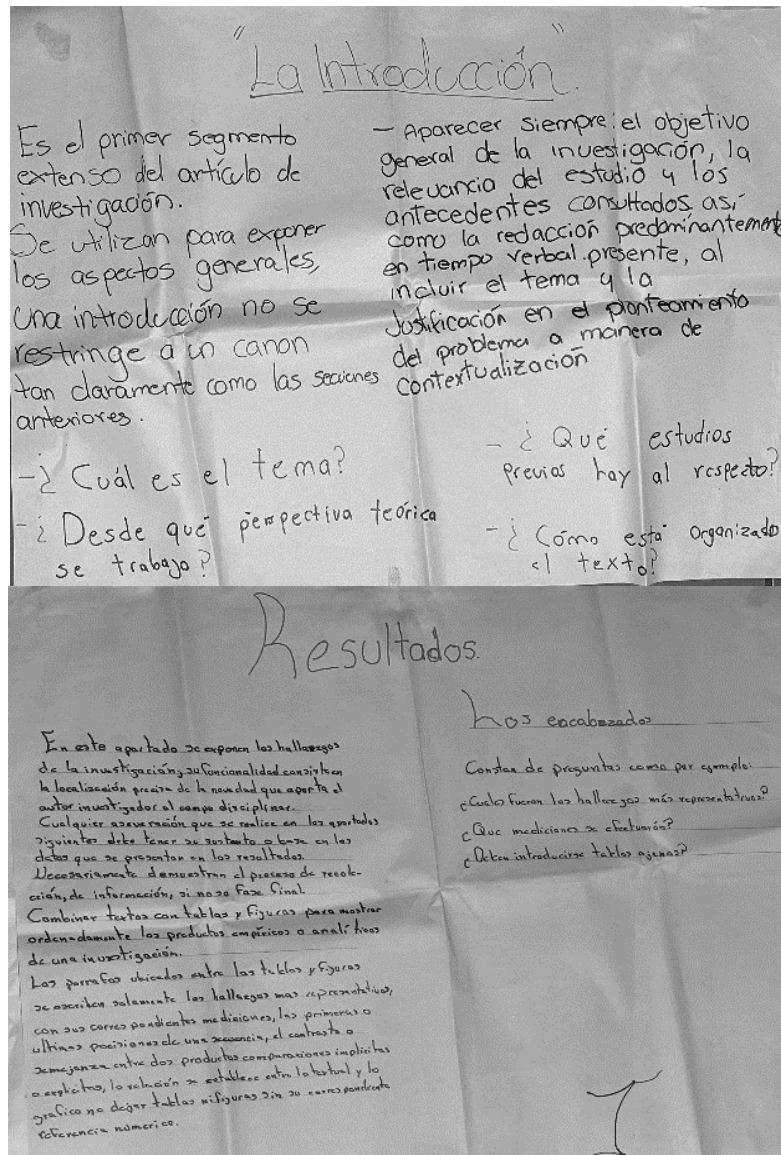 "La Introducción".
Es el primer segmento
extenso del artículo de
investigación.
Se utilizan para exponer
los aspectos generales,
una introducción no se
restringe a un canon
tan claramente como las secciones
anteriores.
-¿Cuál es el tema?
-¿Desde qué perspectiva teórica
se trabajo?
- Aparecer siempre: el objetivo
general de la investigación, la
relevancia del estudio y los
antecedentes consultados así
como la redacción predominantemente
en tiempo verbal presente, al
incluir el tema y la
Justificación en el planteamiento
del problema a manera de
contextualización
- ¿Qué estudios
previos hay al respecto?
- ¿Cómo está organizado
el texto?
Resultados.
En este apartado se exponen los hallazgos
de la investigación, su funcionalidad consiste en
la localización precisa de la novedad que aporta el
autor investigador al campo disciplinar.
Cualquier aseveración que se realice en los apartados
siguientes debe tener su sustento o base en los
datos que se presentan en los resultados.
Necesariamente demuestran el proceso de recole-
cción, de información, si no su fase final.
Combinar textos con tablas y figuras para mostrar
ordenadamente los productos empíricos o analíticos
de una investigación.
Los parrafos ubicados entre las tablas y figuras
se escriben solamente los hallazgos mas representativos,
con sus correspondientes mediciones, las primeras o
ultimas posiciones de una secuencia, el contraste o
semejanza entre dos productos comparaciones implicitas
o explicitas, la relación se establece entre lo textual y lo
grafico no dejar tablas ni figuras sin su correspondiente
referencia numerica.
Los encabezados
Constan de preguntas como por ejemplo:
¿Cuales fueron los hallazgos más representativos?
¿Que mediciones se efectuarón?
¿Deben introducirse tablas ajenas?